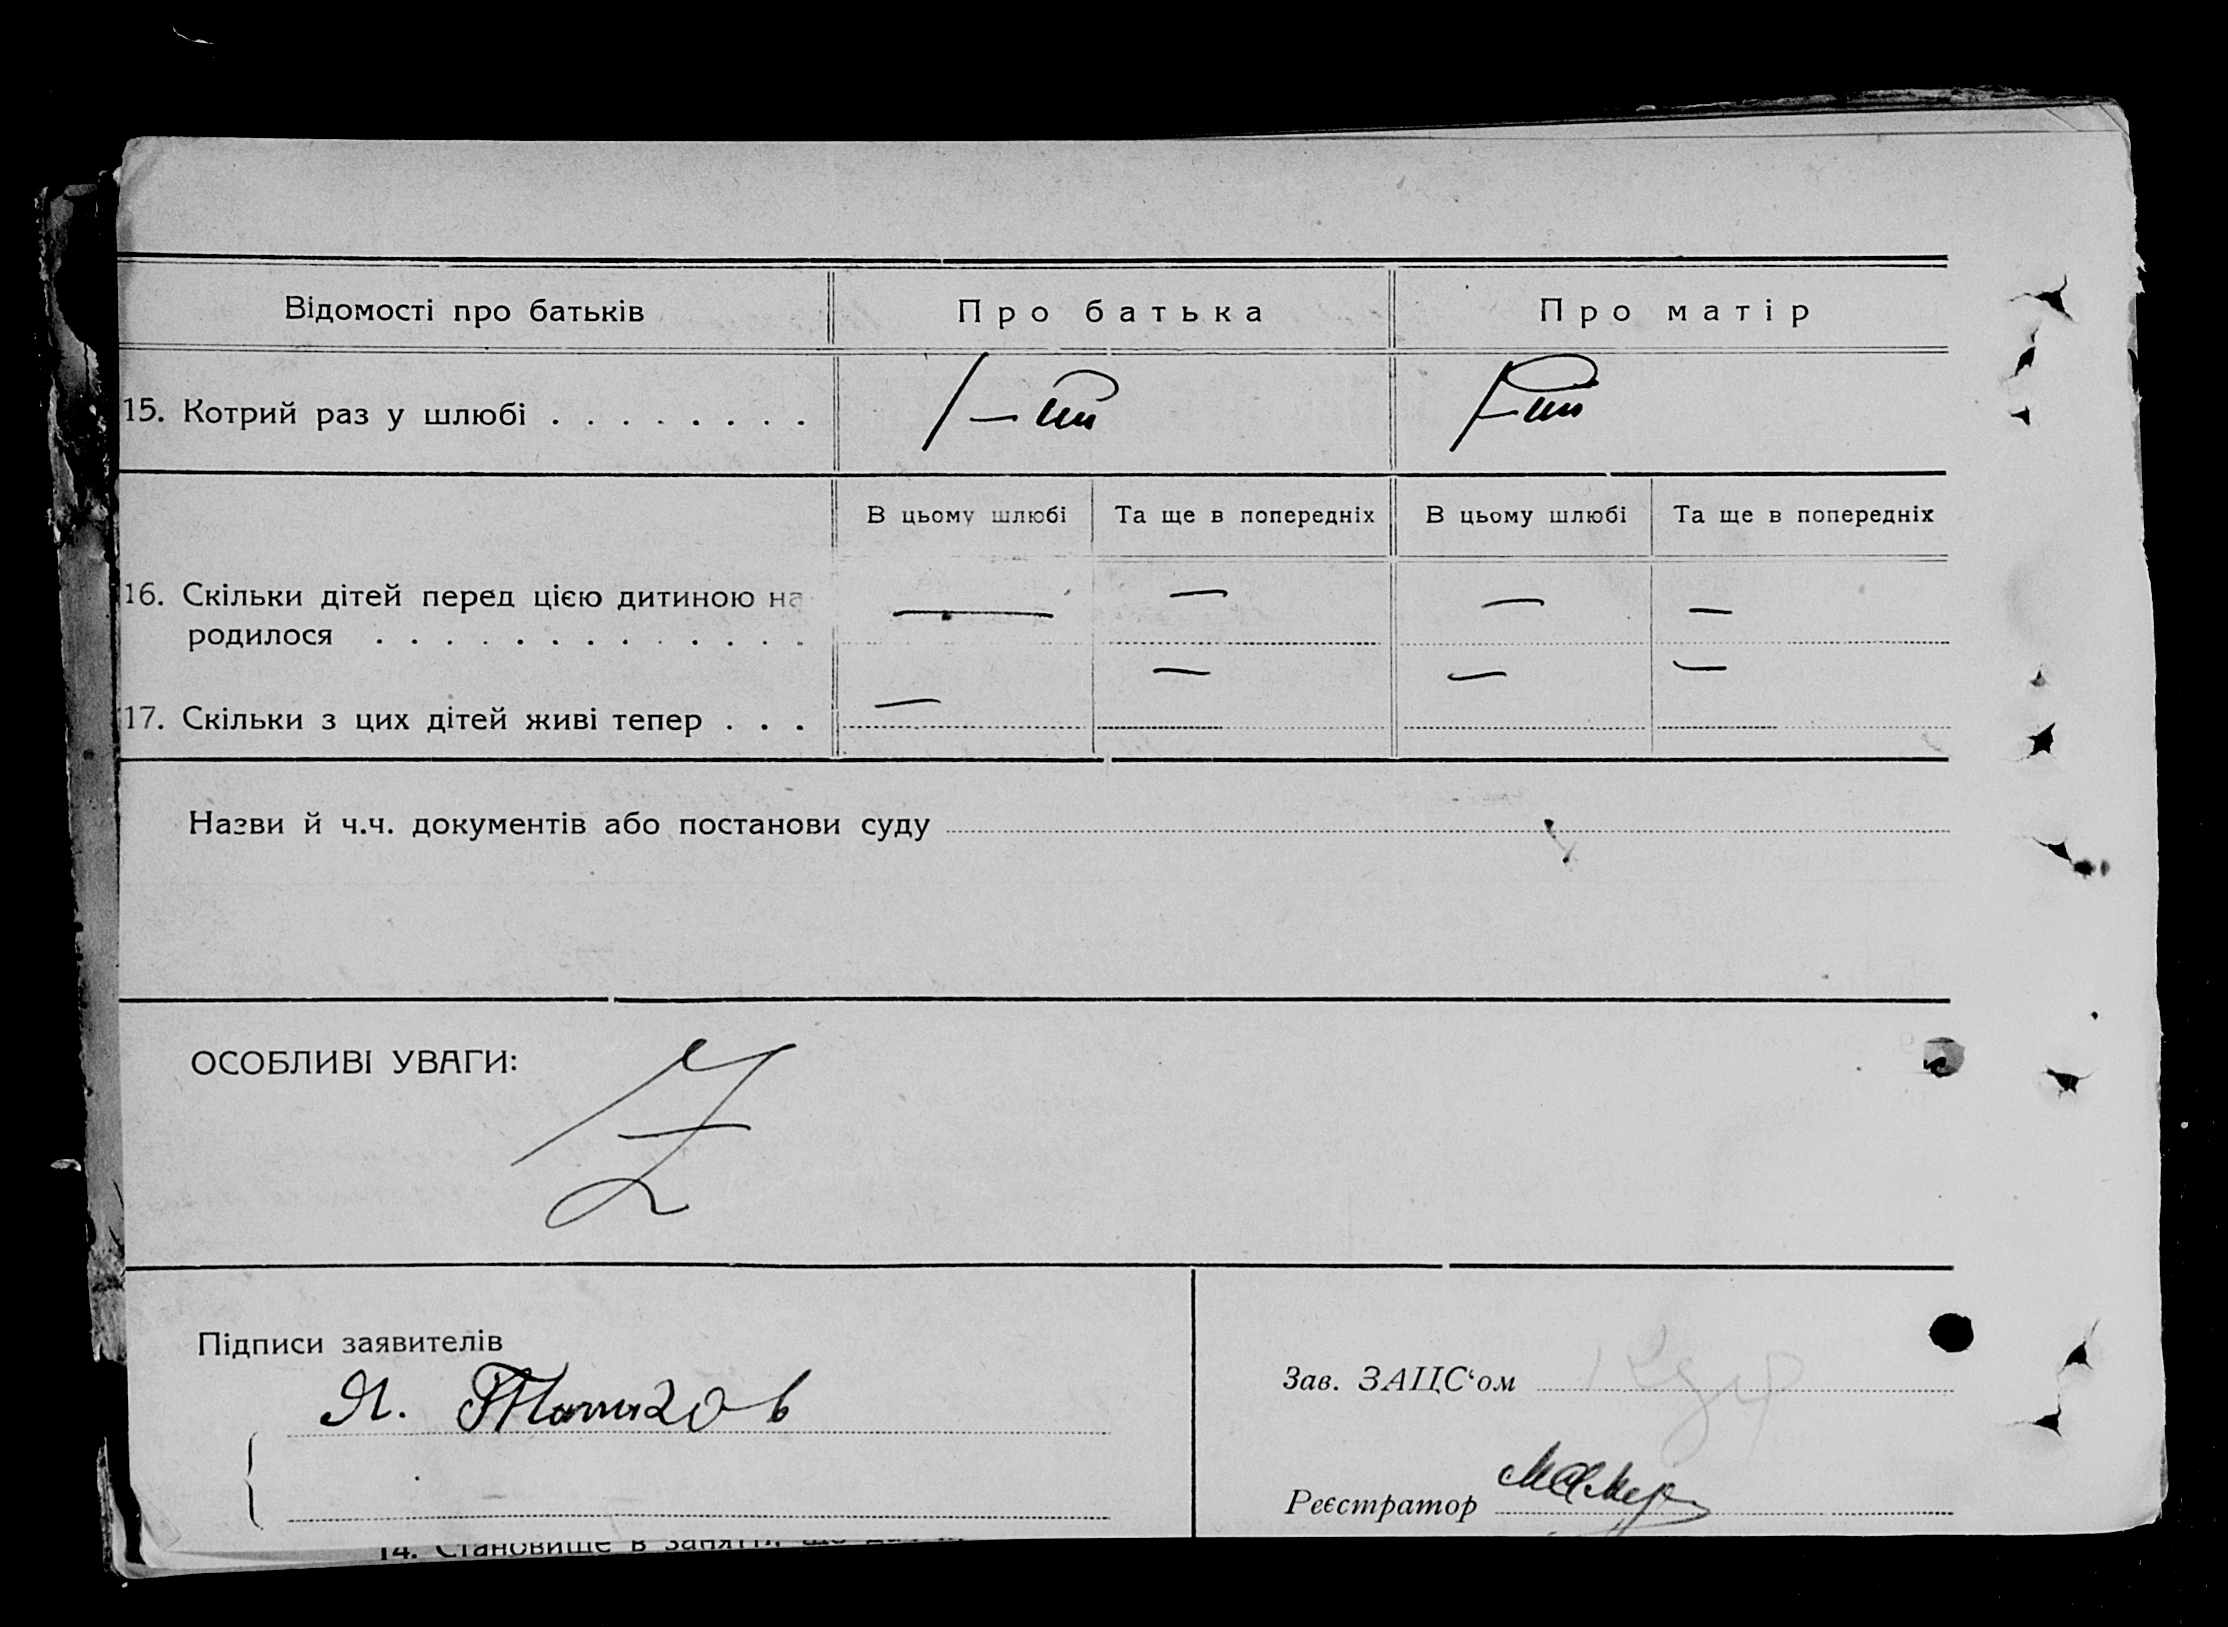 Відомості про батьків
Про батька
Про матір
15. Котрий раз у шлюбі . . . . . . . .
В цьому шлюбі
Та ще в попередніх
В цьому шлюбі
Та ще в попередніх
16. Скільки дітей перед цією дитиною на
родилося . . . . . . . . . . . . .
— — — —
17. Скільки з цих дітей живі тепер . . .
— — — —
Назви й ч.ч. документів або постанови суду
ОСОБЛИВІ УВАГИ:
Z
Підписи заявителів
Зав. ЗАЦС‘ом
Я.
Реєстратор
14. Становище в занятті, що